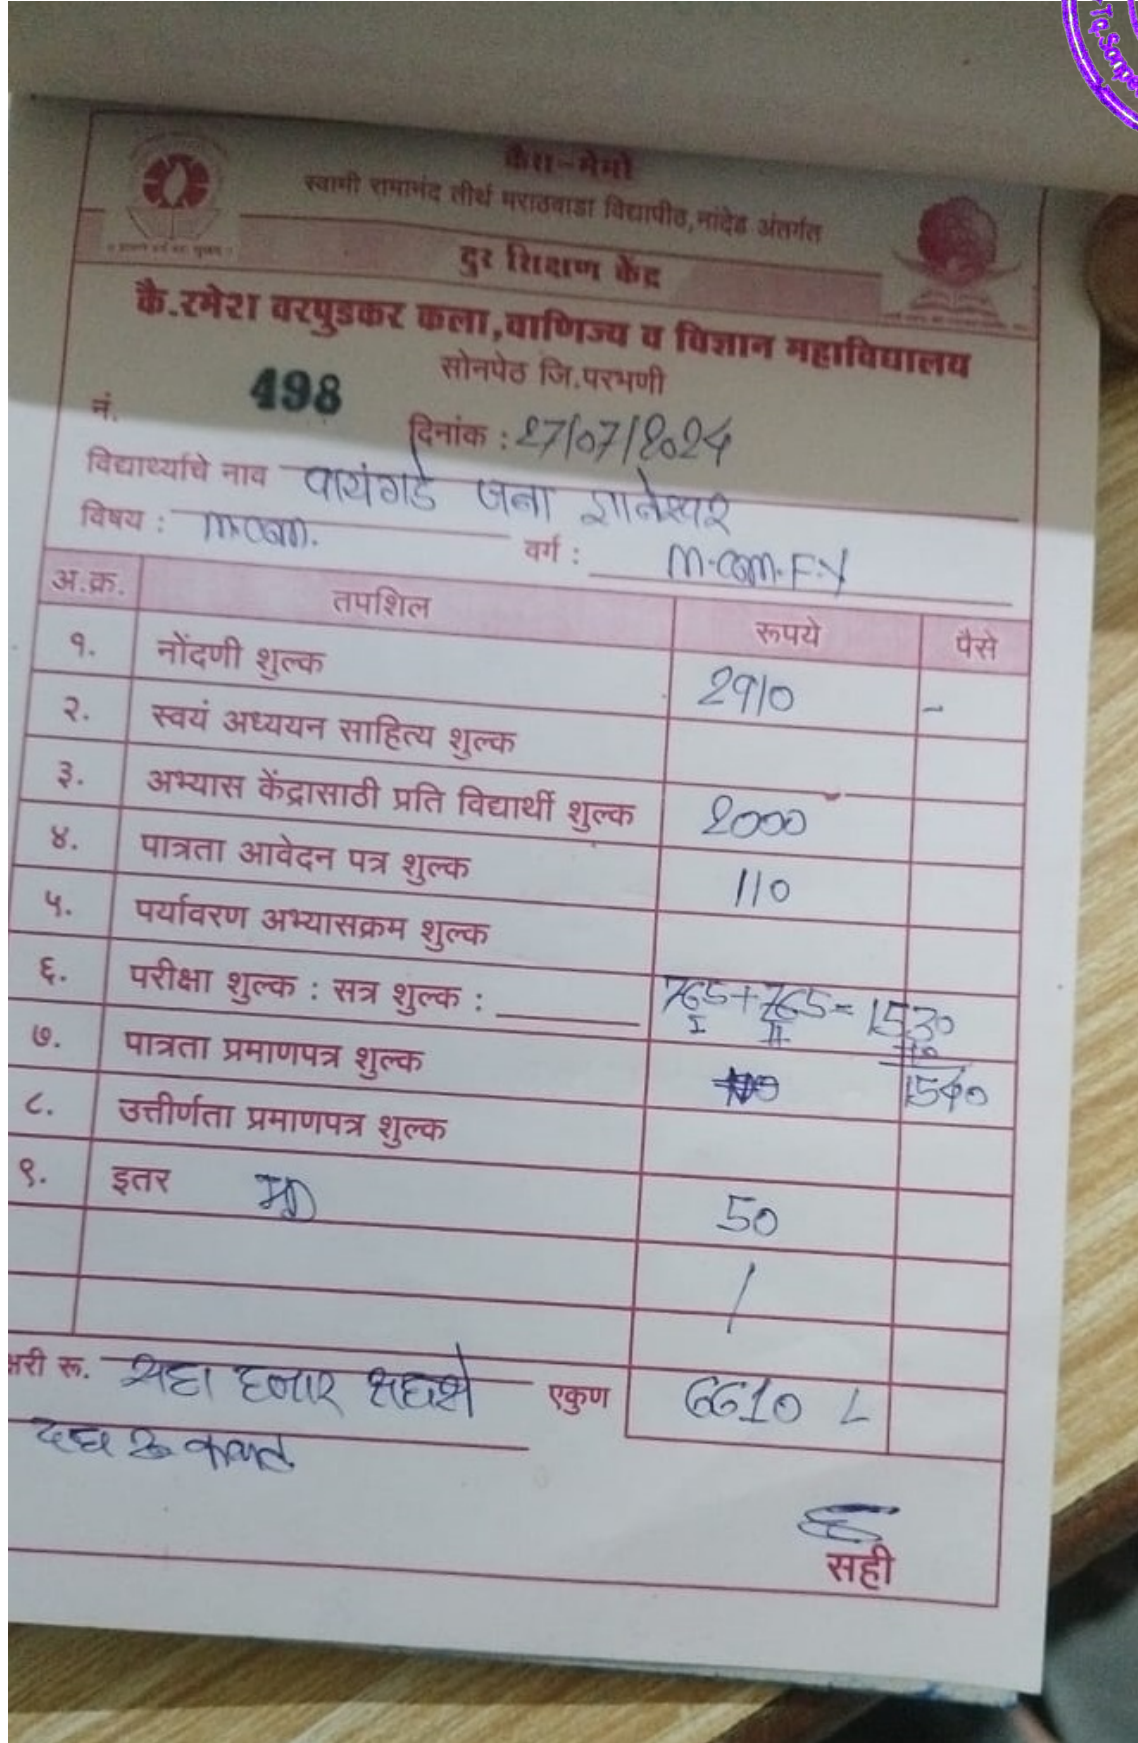 Tq.Sonpe
कॅश-मेमो
स्वामी रामानंद तीर्थ मराठवाडा विद्यापीठ,नांदेड अंतर्गत
दुर शिक्षण केंद्र
कै.रमेश वरपुडकर कला,वाणिज्य व विज्ञान महाविद्यालय
सोनपेठ जि.परभणी
नं. 498 दिनांक : 27/07/2024
विद्यार्थ्याचे नाव पायंगडे जना ज्ञानेश्वर
विषय : m.com. वर्ग : M.com.F.Y
अ.क्र. तपशिल रूपये पैसे
१. नोंदणी शुल्क 2910 -
२. स्वयं अध्ययन साहित्य शुल्क
३. अभ्यास केंद्रासाठी प्रति विद्यार्थी शुल्क 2000
४. पात्रता आवेदन पत्र शुल्क 110
५. पर्यावरण अभ्यासक्रम शुल्क
६. परीक्षा शुल्क : सत्र शुल्क : 765+765=1530
I II 10
७. पात्रता प्रमाणपत्र शुल्क 1540
८. उत्तीर्णता प्रमाणपत्र शुल्क
९. इतर 50
क्षरी रू. सहा हजार सहाशे एकुण 6610
दहा रु फक्त
सही